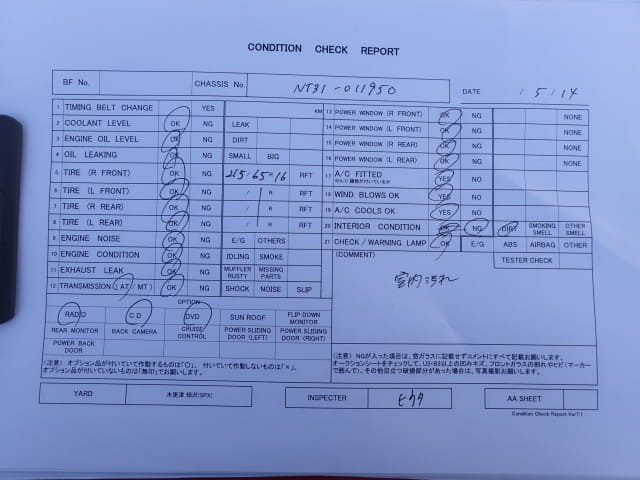 CONDITION CHECK REPORT
BF No. CHASSIS No. NT31-011950 DATE / 5 / 14
1 TIMING BELT CHANGE YES KM
2 COOLANT LEVEL OK NG LEAK
3 ENGINE OIL LEVEL OK NG DIRT
4 OIL LEAKING OK NG SMALL BIG
5 TIRE (R FRONT) OK NG 215/65-16 RFT
6 TIRE (L FRONT) OK NG / R RFT
7 TIRE (R REAR) OK NG / R RFT
8 TIRE (L REAR) OK NG / R RFT
9 ENGINE NOISE OK NG E/G OTHERS
10 ENGINE CONDITION OK NG IDLING SMOKE
11 EXHAUST LEAK OK NG MUFFLER RUSTY MISSING PARTS
12 TRANSMISSION (AT/MT) OK NG SHOCK NOISE SLIP
OPTION
RADIO CD DVD SUN ROOF FLIP DOWN MONITOR
REAR MONITOR BACK CAMERA CRUISE CONTROL POWER SLIDING DOOR (LEFT) POWER SLIDING DOOR (RIGHT)
POWER BACK DOOR
(注意) オプション品が付いていて作動するものは「○」、付いていて作動しないものは「×」、
オプション品が付いていないものは「無印」でお願いします。
13 POWER WINDOW (R FRONT) OK NG NONE
14 POWER WINDOW (L FRONT) OK NG NONE
15 POWER WINDOW (R REAR) OK NG NONE
16 POWER WINDOW (L REAR) OK NG NONE
17 A/C FITTED YES NO
18 WIND BLOWS OK YES NO
19 A/C COOLS OK YES NO
20 INTERIOR CONDITION OK NG DIRT SMOKING SMELL OTHER SMELL
21 CHECK / WARNING LAMP OK E/G ABS AIRBAG OTHER
(COMMENT) TESTER CHECK
室内汚れ
(注意) NGが入った項目は、窓ガラスに記載せずコメントにすべて記載お願いします。
オークションシートをチェックして、U3・B3以上の凹みキズ、フロントガラスの割れやヒビ(マーカー
で読んで)、その他目立つ破損部分があった場合は、写真撮影お願いします。
YARD 木更津 INSPECTER AA SHEET
Condition Check Report Ver7.1